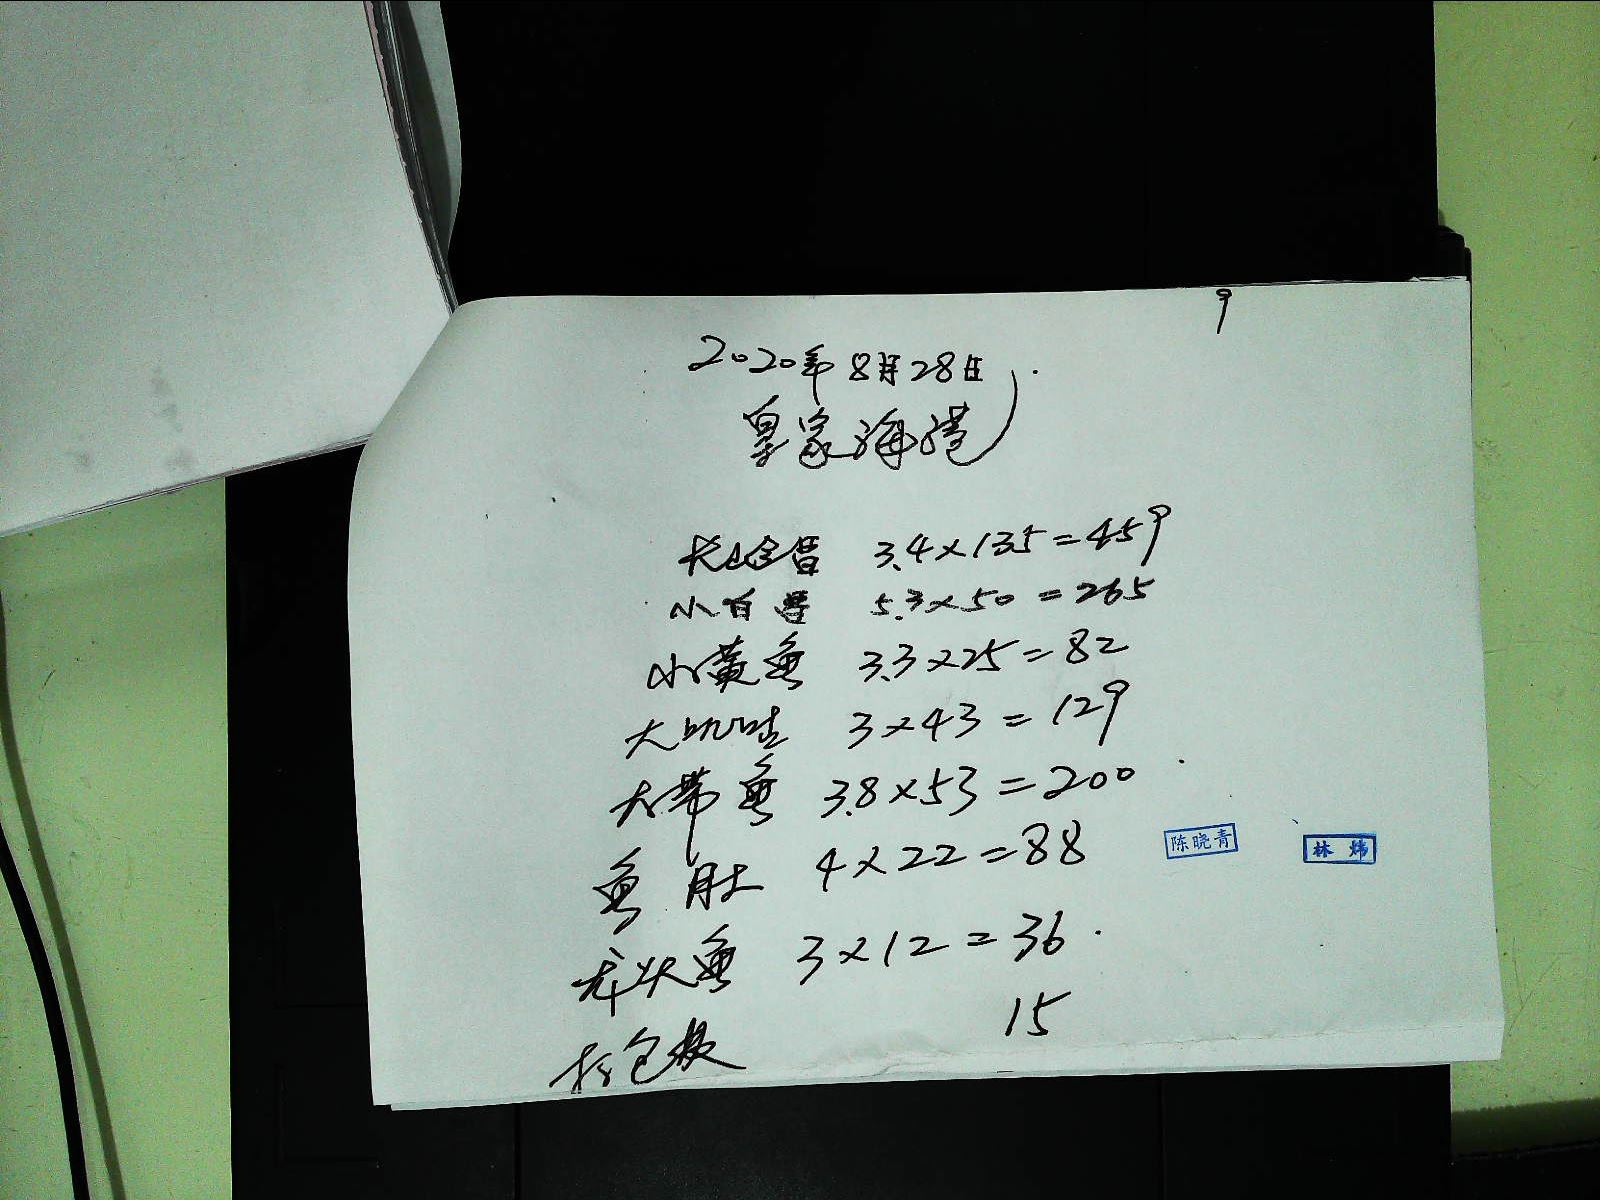 9
2020年8月28日
皇家海港
3.4×135=459
小白 5.3×50=265
小黄鱼 3.3×25=82
大 3×43=129
大带鱼 3.8×53=200
鱼肚 4×22=88
陈晓青 林炜
龙头鱼 3×12=36
打包 15